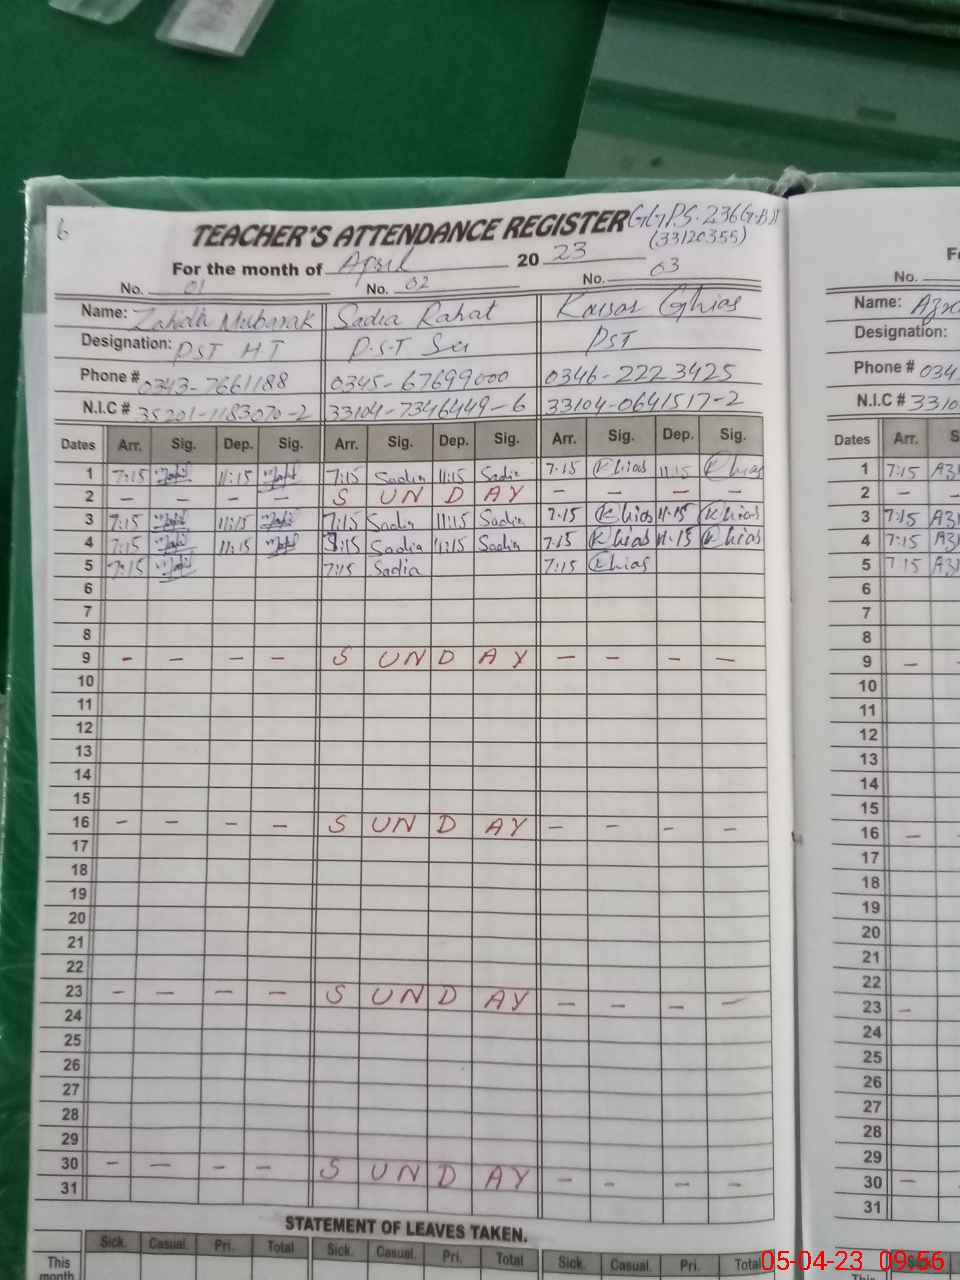 6
TEACHER'S ATTENDANCE REGISTER GGPS. 236 G.B
(33120355)
For the month of April 2023
No. 01 No. 02 No. 03
Name: Zahida Mubarak Sadia Rahat Kausar Ghias
Designation: PST HT P.S.T PST
Phone # 0343-7661188 0345-67699000 0346-2223425
N.I.C # 35201-1183070-2 33104-7346449-6 33104-0641517-2
Dates Arr. Sig. Dep. Sig. Arr. Sig. Dep. Sig. Arr. Sig. Dep. Sig.
1 7:15 11:15 7:15 Sadia 11:15 Sadia 7.15 Khias 11.15 Khias
2 – – – – S UN D AY – – – –
3 7:15 11:15 7:15 Sadia 11:15 Sadia 7.15 Khias 11.15 Khias
4 7:15 11:15 :15 Sadia 11:15 Sadia 7.15 Khias 11.15 Khias
5 7:15 7:15 Sadia 7:15 Khias
6
7
8
9 – – – – S UN D AY – – – –
10
11
12
13
14
15
16 – – – – S UN D AY – – – –
17
18
19
20
21
22
23 – – – – S UN D AY – – – –
24
25
26
27
28
29
30 – – – – S UN D AY – – – –
31
STATEMENT OF LEAVES TAKEN.
Sick. Casual. Pri. Total Sick. Casual. Pri. Total Sick. Casual. Pri. Total
This
month
No.
Name:
Designation:
Phone # 034
N.I.C # 3310
Dates Arr.
1 7:15
2 – –
3 7:15
4 7:15
5 7:15
6
7
8
9 –
10
11
12
13
14
15
16 –
17
18
19
20
21
22
23 –
24
25
26
27
28
29
30 –
31
Sick.
This
05-04-23 09:56